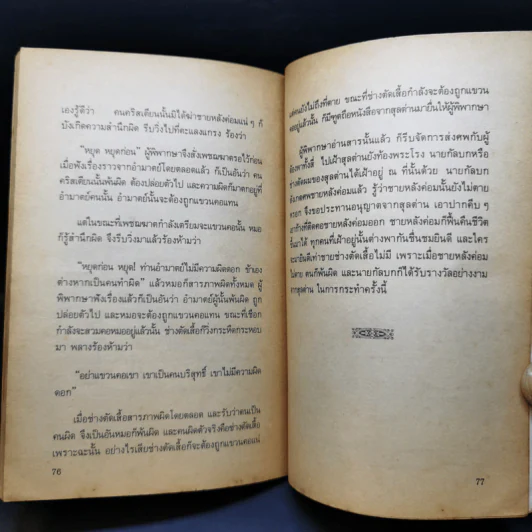 เองรู้ดีว่า คนคริสเตียนนั้นมิได้ฆ่าชายหลังค่อมแน่ ๆ ก็
บังเกิดความสำนึกผิด รีบวิ่งไปที่ตะแลงแกง ร้องว่า
"หยุด หยุดก่อน" ผู้พิพากษาจึงสั่งเพชฌฆาตรอไว้ก่อน
เมื่อฟังเรื่องราวจากอำมาตย์โดยตลอดแล้ว ก็เป็นอันว่า คน
คริสเตียนนั้นพ้นผิด ต้องปล่อยตัวไป และความผิดก็มาตกอยู่ที่
อำมาตย์คนนั้น อำมาตย์นั้นจะต้องถูกแขวนคอแทน
แต่ในขณะที่เพชฌฆาตกำลังเตรียมจะแขวนคอนั้น หมอ
ก็รู้สำนึกผิด จึงรีบวิ่งมาแล้วร้องห้ามว่า
"หยุดก่อน หยุด! ท่านอำมาตย์ไม่มีความผิดดอก ข้าเอง
ต่างหากเป็นคนทำผิด" แล้วหมอก็สารภาพผิดทั้งหมด ผู้
พิพากษาฟังเรื่องแล้วก็เป็นอันว่า อำมาตย์ผู้นั้นพ้นผิด ถูก
ปล่อยตัวไป และหมอจะต้องถูกแขวนคอแทน ขณะที่เชือก
กำลังจะสวมคอหมออยู่แล้วนั้น ช่างตัดเสื้อก็วิ่งกระหืดกระหอบ
มา พลางร้องห้ามว่า
"อย่าแขวนคอเขา เขาเป็นคนบริสุทธิ์ เขาไม่มีความผิด
ดอก"
เมื่อช่างตัดเสื้อสารภาพผิดโดยตลอด และรับว่าตนเป็น
คนผิด จึงเป็นอันหมอก็พ้นผิด และคนผิดตัวจริงคือช่างตัดเสื้อ
เพราะฉะนั้น อย่างไรเสียช่างตัดเสื้อก็จะต้องถูกแขวนคอแน่
76
ยังไม่ถึงที่ตาย ขณะที่ช่างตัดเสื้อกำลังจะต้องถูกแขวน
คออยู่แล้วนั้น ก็มีทูตถือหนังสือจากสุลต่านมายื่นให้ผู้พิพากษา
ผู้พิพากษาอ่านสารนั้นแล้ว ก็รีบจัดการส่งศพกับผู้
ต้องหาทั้งสี่ ไปเฝ้าสุลต่านยังท้องพระโรง นายกัลบกหรือ
ช่างตัดผมของสุลต่านได้เฝ้าอยู่ ณ ที่นั้นด้วย นายกัลบก
ศพชายหลังค่อมแล้ว รู้ว่าชายหลังค่อมนั้นยังไม่ตาย
จึงขอประทานอนุญาตจากสุลต่าน เอาปากคีบ ๆ
ก้างที่ติดคอชายหลังค่อมออก ชายหลังค่อมก็ฟื้นคืนชีวิต
ขึ้นมาได้ ทุกคนที่เฝ้าอยู่นั้นต่างพากันชื่นชมยินดี และใคร
จะมายินดีเท่าชายช่างตัดเสื้อไม่มี เพราะเมื่อชายหลังค่อม
ไม่ตาย ตนก็พ้นผิด และนายกัลบกก็ได้รับรางวัลอย่างงาม
จากสุลต่าน ในการกระทำครั้งนี้
77